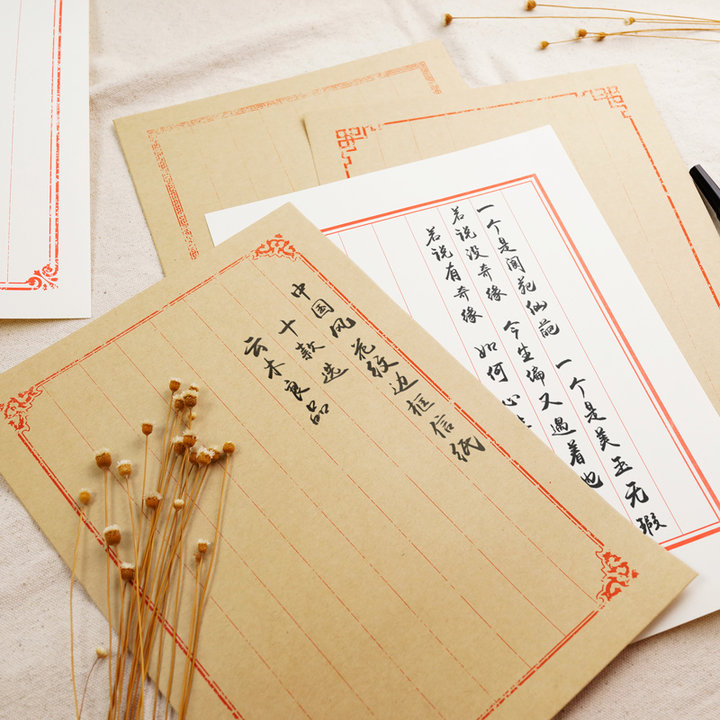 一个是阆苑仙葩 一个是美玉无瑕
若说没奇缘 今生偏又遇着他
若说有奇缘 如何心
中国风花纹边框信纸
十款选
云木良品